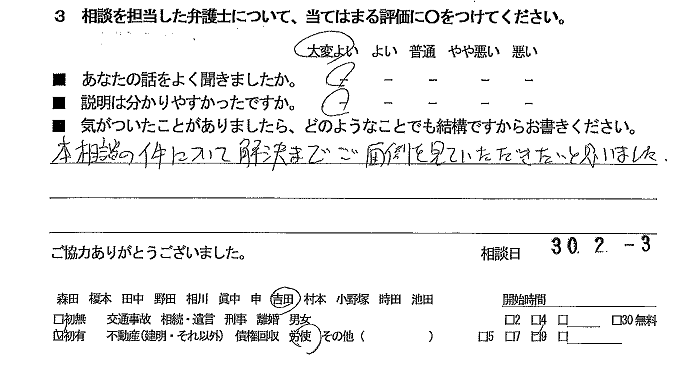 3 相談を担当した弁護士について、当てはまる評価に○をつけてください。
大変よい よい 普通 やや悪い 悪い
■ あなたの話をよく聞きましたか。 － － － － －
■ 説明は分かりやすかったですか。 － － － － －
■ 気がついたことがありましたら、どのようなことでも結構ですからお書きください。
本相談の件について解決までご面倒を見ていただきたいと思いました.
ご協力ありがとうございました。 相談日 30. 2. -3
森田 榎本 田中 野田 相川 眞中 申 吉田 村本 小野塚 時田 池田 開始時間
□初無 交通事故 相続・遺言 刑事 離婚 男女 □2 □4 □ □30無料
☑初有 不動産(建明・それ以外) 債権回収 労使 その他( ) □5 □7 ☑9 □